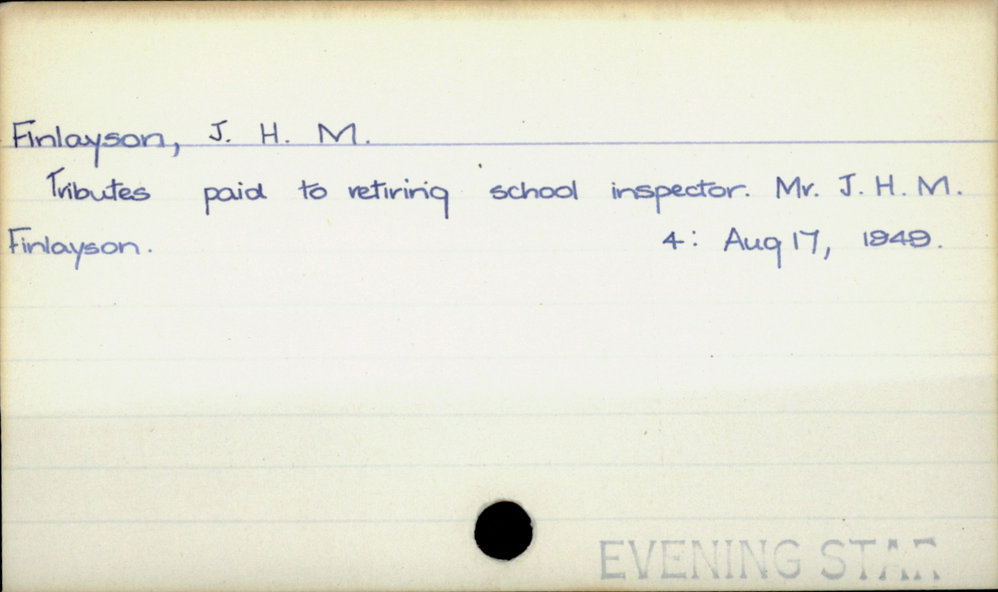 Finlayson, J. H. M.
Tributes paid to retiring school inspector. Mr. J. H. M.
Finlayson. 4: Aug 17, 1949.
EVENING STAR